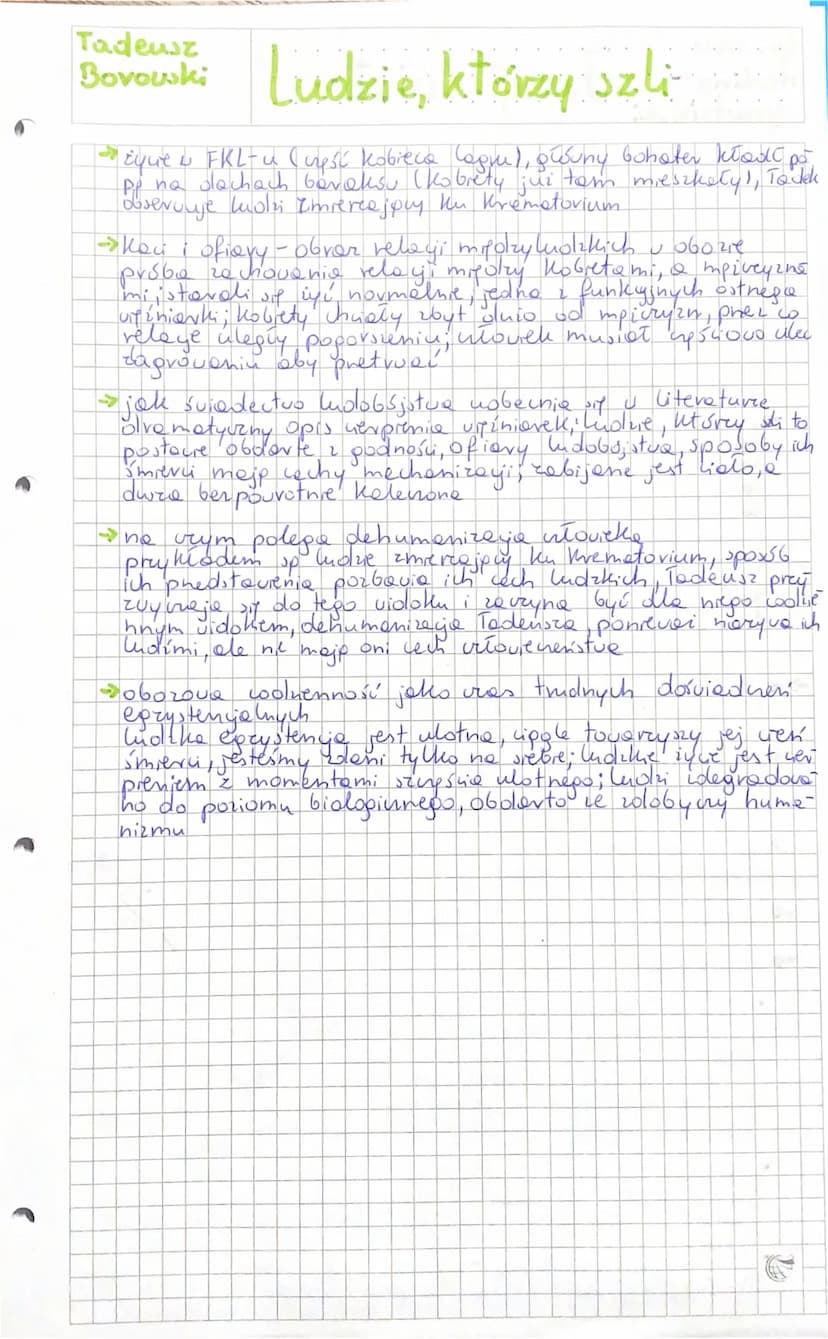 Tadeusz
Borowski
Ludzie, którzy szli
→ życie w FKL-u (część kobieca lagru), główny bohater kładł pa
pę na dachach baraków (kobiety już tam mieszkały), Tadek
obserwuje ludzi zmierzający ku krematorium
→ Kaci i ofiary - obraz relacji międzyludzkich w obozie
próba zachowania relacji między kobietami, a mężczyzna
mi; starali się żyć normalnie; jedna z funkcyjnych ostrzega
więźniarki; kobiety chciały zbyt dużo od mężczyzn, przez co
relacje uległy pogorszeniu; człowiek musiał częściowo ulec
zagrożeniu aby przetrwać
→ jak świadectwo ludobójstwa uobecnia się w literaturze
dramatyczny opis cierpienia więźniarek; ludzie, którzy szli to
postacie obdarte z godności, ofiary ludobójstwa, sposoby ich
śmierci mają cechy mechanizacji; zabijane jest ciało, a
dusza bezpowrotnie kaleczona
→ na czym polega dehumanizacja człowieka
przykładem są ludzie zmierzający ku krematorium, sposób
ich przedstawienia pozbawia ich cech ludzkich, Tadeusz przy
zwyczaja się do tego widoku i zaczyna być dla niego codzie
nnym widokiem, dehumanizacja Tadeusza, ponieważ nazywa ich
ludźmi, ale nie mają oni cech człowieczeństwa
→ obozowa codzienność jako czas trudnych doświadczeń
egzystencjalnych
ludzka egzystencja jest ulotna, ciągle towarzyszy jej cień
śmierci, jesteśmy zdani tylko na siebie; ludzkie życie jest cier
pieniem z momentami szczęścia ulotnego; ludzi zdegradowa-
no do poziomu biologicznego, obdarto ze zdobyczy huma-
nizmu